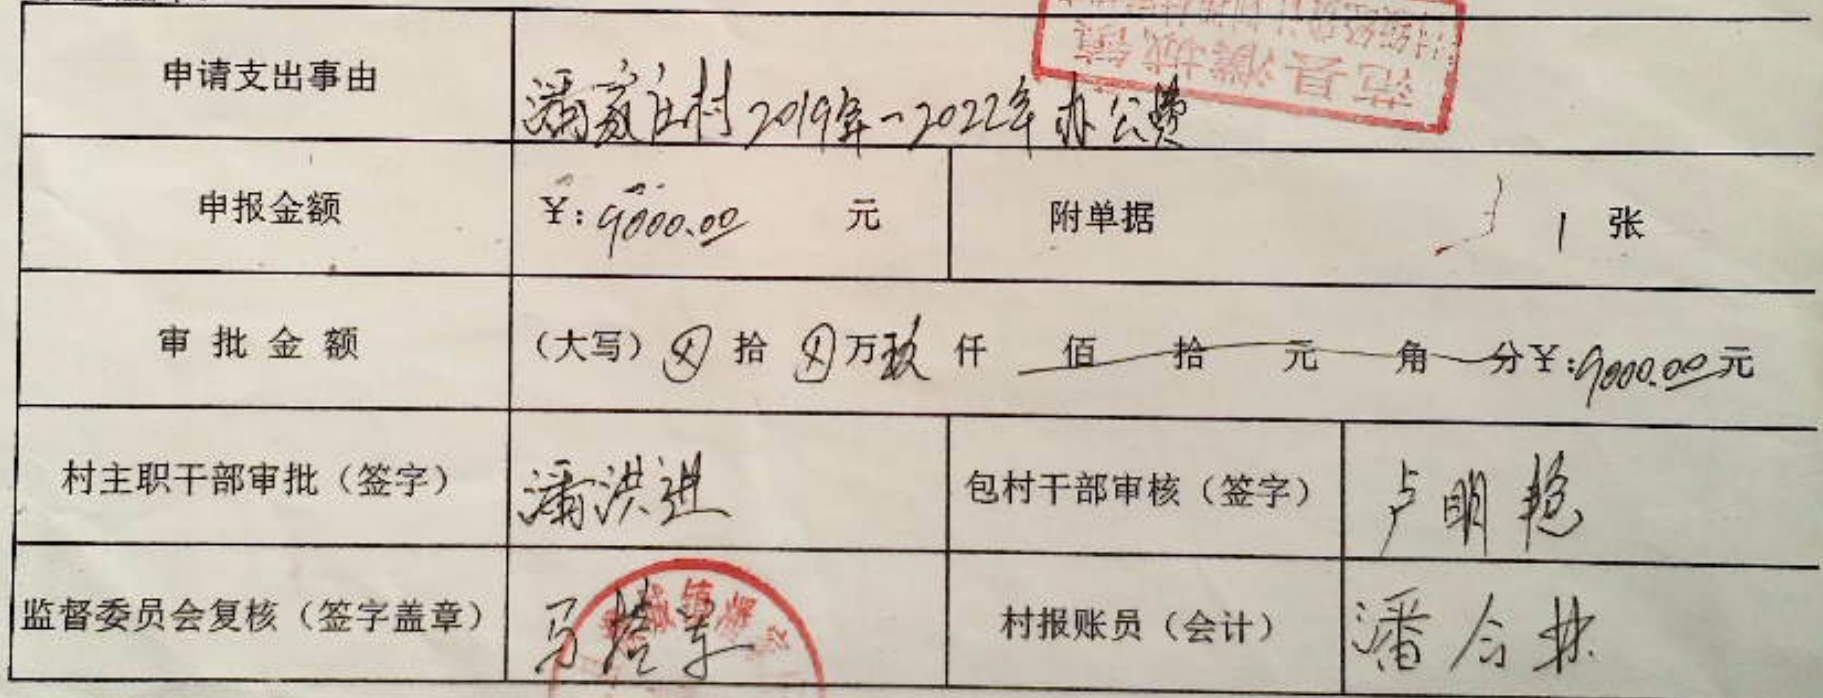 申请支出事由 潘家庄村2019年-2022年办公费
范县濮城镇
申报金额 ¥:9000.00 元 附单据 1 张
审批金额 (大写)⊗拾⊗万玖仟 佰 拾 元 角 分¥:9000.00元
村主职干部审批(签字) 潘洪进 包村干部审核(签字) 卢明艳
监督委员会复核(签字盖章) 马 村报账员(会计) 潘合林